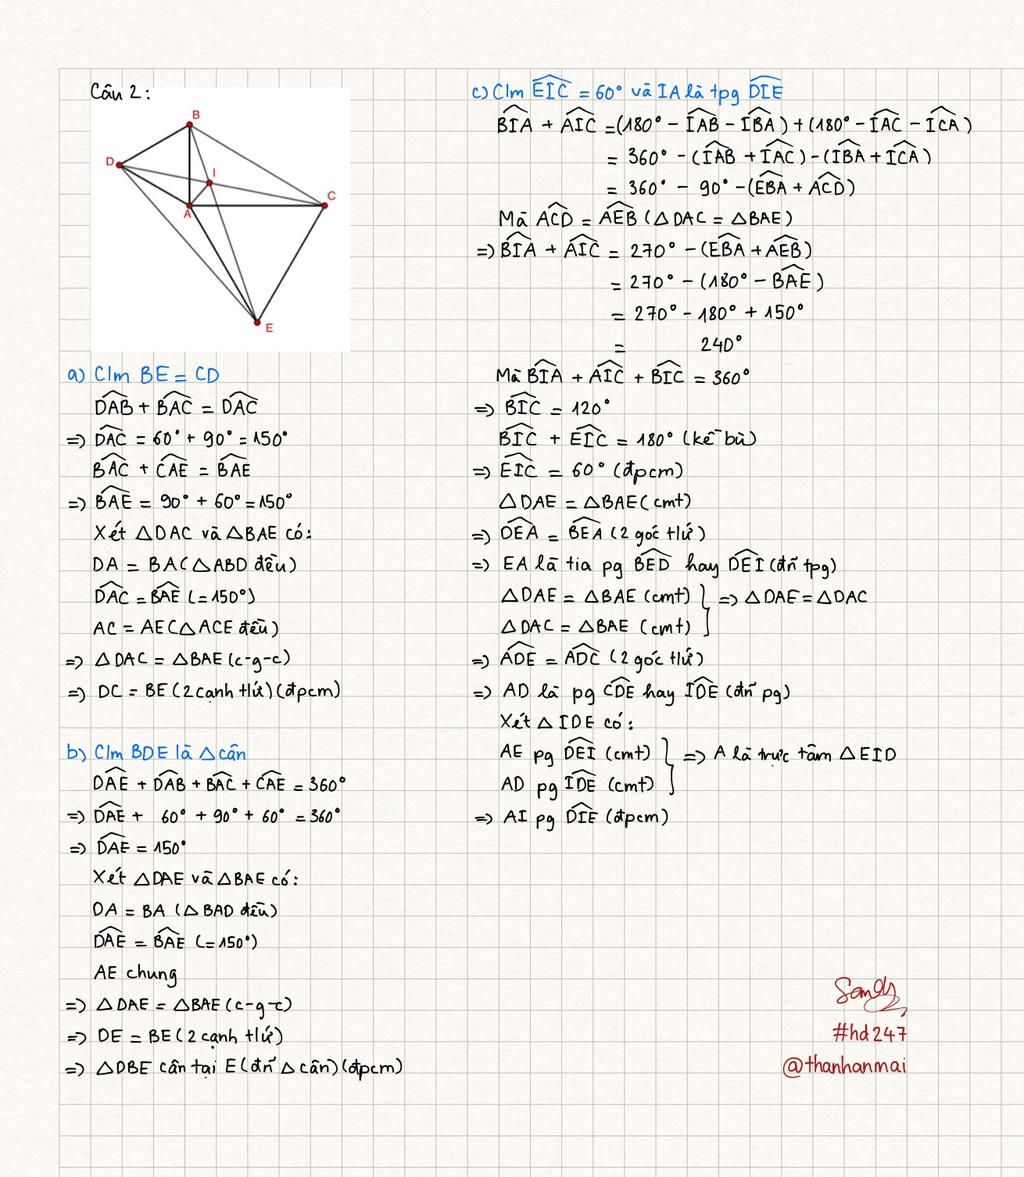 Câu 2:
B
D
I
C
A
E
a) C/m BE = CD
DAB + BAC = DAC
=> DAC = 60° + 90° = 150°
BAC + CAE = BAE
=> BAE = 90° + 60° = 150°
Xét △DAC và △BAE có:
DA = BA (△ABD đều)
DAC = BAE (= 150°)
AC = AE (△ACE đều)
=> △DAC = △BAE (c-g-c)
=> DC = BE (2 cạnh t/ứ) (đpcm)
b) C/m BDE là △ cân
DAE + DAB + BAC + CAE = 360°
=> DAE + 60° + 90° + 60° = 360°
=> DAE = 150°
Xét △DAE và △BAE có:
DA = BA (△BAD đều)
DAE = BAE (= 150°)
AE chung
=> △DAE = △BAE (c-g-c)
=> DE = BE (2 cạnh t/ứ)
=> △DBE cân tại E (đ/n △ cân) (đpcm)
c) C/m EIC = 60° và IA là tpg DIE
BIA + AIC = (180° - IAB - IBA) + (180° - IAC - ICA)
= 360° - (IAB + IAC) - (IBA + ICA)
= 360° - 90° - (EBA + ACD)
Mà ACD = AEB (△DAC = △BAE)
=> BIA + AIC = 270° - (EBA + AEB)
= 270° - (180° - BAE)
= 270° - 180° + 150°
= 240°
Mà BIA + AIC + BIC = 360°
=> BIC = 120°
BIC + EIC = 180° (kề bù)
=> EIC = 60° (đpcm)
△DAE = △BAE (cmt)
=> DEA = BEA (2 góc t/ứ)
=> EA là tia pg BED hay DEI (đ/n tpg)
△DAE = △BAE (cmt) } => △DAE = △DAC
△DAC = △BAE (cmt)
=> ADE = ADC (2 góc t/ứ)
=> AD là pg CDE hay IDE (đ/n pg)
Xét △IDE có:
AE pg DEI (cmt) } => A là trực tâm △EID
AD pg IDE (cmt)
=> AI pg DIE (đpcm)
Sandy
#hd247
@thanhanmai